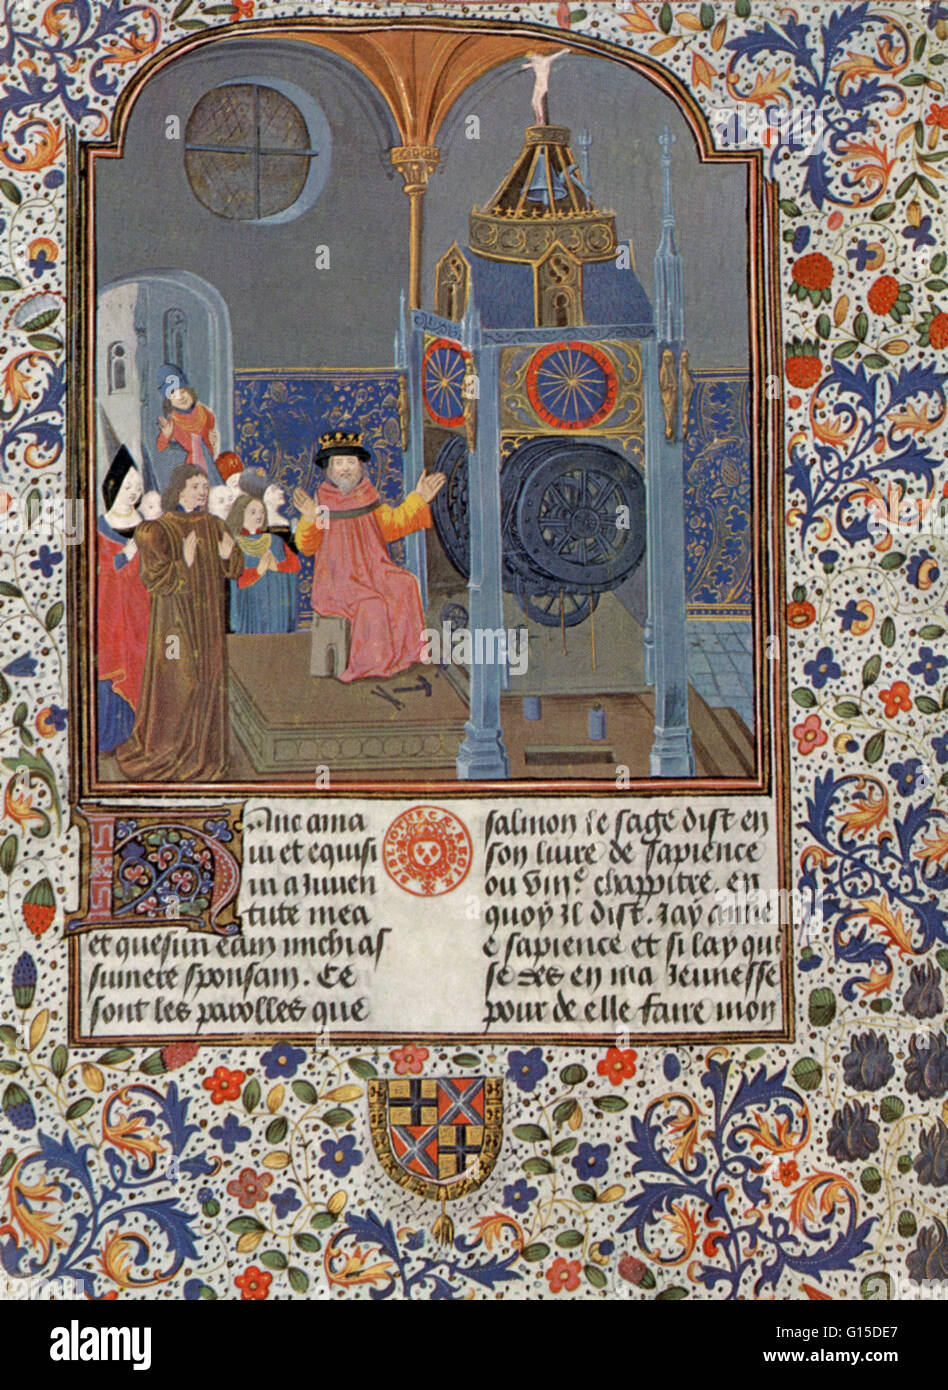 Hanc ama
ui et equisi
ui a iuuen
tute mea
et quesiui eam michi as
sumere sponsam. Ce
sont les parolles que
BIBLIOTHECÆ REGIÆ
salmon le sage dist en
son liure de sapience
ou viii.e chappitre. en
quoy il dist. Jay ame
e sapience et si lay qui
se des en ma Jeunesse
pour de elle faire mon
alamy stock photo
G15DE7
www.alamy.com